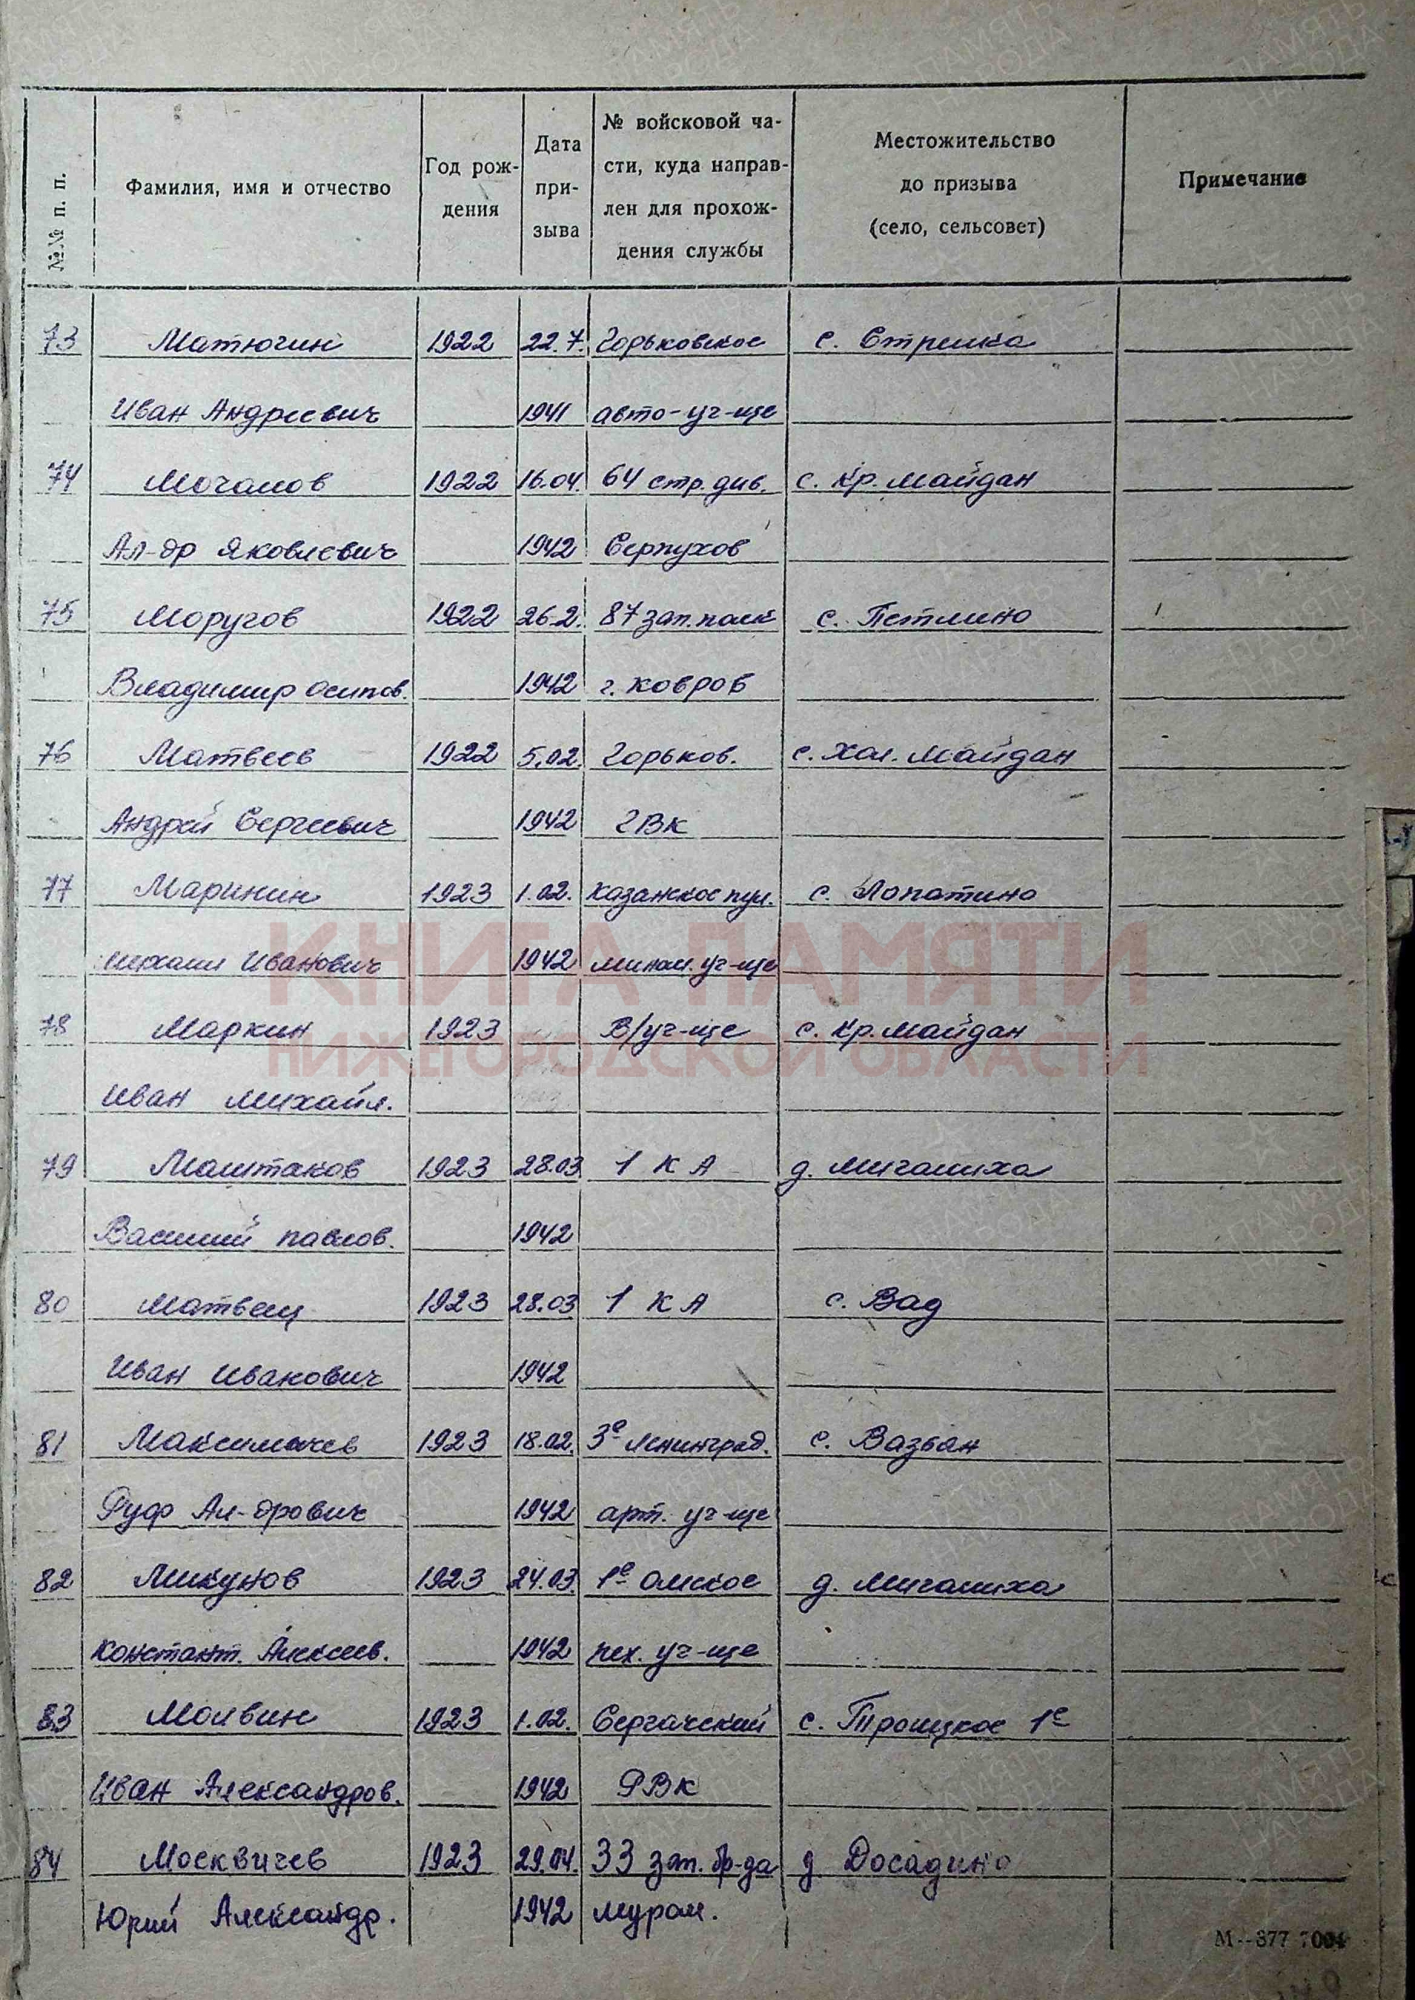 №№ п. п.
Фамилия, имя и отчество
Год рож-
дения
Дата
при-
зыва
№ войсковой ча-
сти, куда направ-
лен для прохож-
дения службы
Местожительство
до призыва
(село, сельсовет)
Примечание
73 Матюгин 1922 22.7. Горьковское с. Стрелка
Иван Андреевич 1941 авто-уч-ще
74 Мочалов 1922 16.04. 64 стр. див. с. Кр. Майдан
Ал-др Яковлевич 1942 Серпухов
75 Моругов 1922 26.2. 87 зап. полк с. Петлино
Владимир Осипов. 1942 г. Ковров
76 Матвеев 1922 5.02. Горьков. с. Хол. Майдан
Андрей Сергеевич 1942 ГВК
77 Маринин 1923 1.02. Казанское пул. с. Лопатино
Михаил Иванович 1942 мином. уч-ще
КНИГА ПАМЯТИ
78 Маркин 1923 В/уч-ще с. Кр. Майдан
НИЖЕГОРОДСКОЙ ОБЛАСТИ
Иван Михайл.
79 Маштаков 1923 28.03 1 КА д. Мигалиха
Василий Павлов. 1942
80 Матвеиц 1923 28.03 1 КА с. Вад
Иван Иванович 1942
81 Максимычев 1923 18.02. 3е Ленинград. с. Вазьян
Руф Ал-дрович 1942 арт. уч-ще
82 Микунов 1923 24.03. 1е Омское д. Мигалиха
Констант. Алексеев. 1942 пех. уч-ще
83 Молвин 1923 1.02. Сергачский с. Троицкое 1е
Иван Александров. 1942 РВК
84 Москвичев 1923 29.04. 33 зап. бр-да д. Досадино
Юрий Александр. 1942 Муром.
М--377 7004